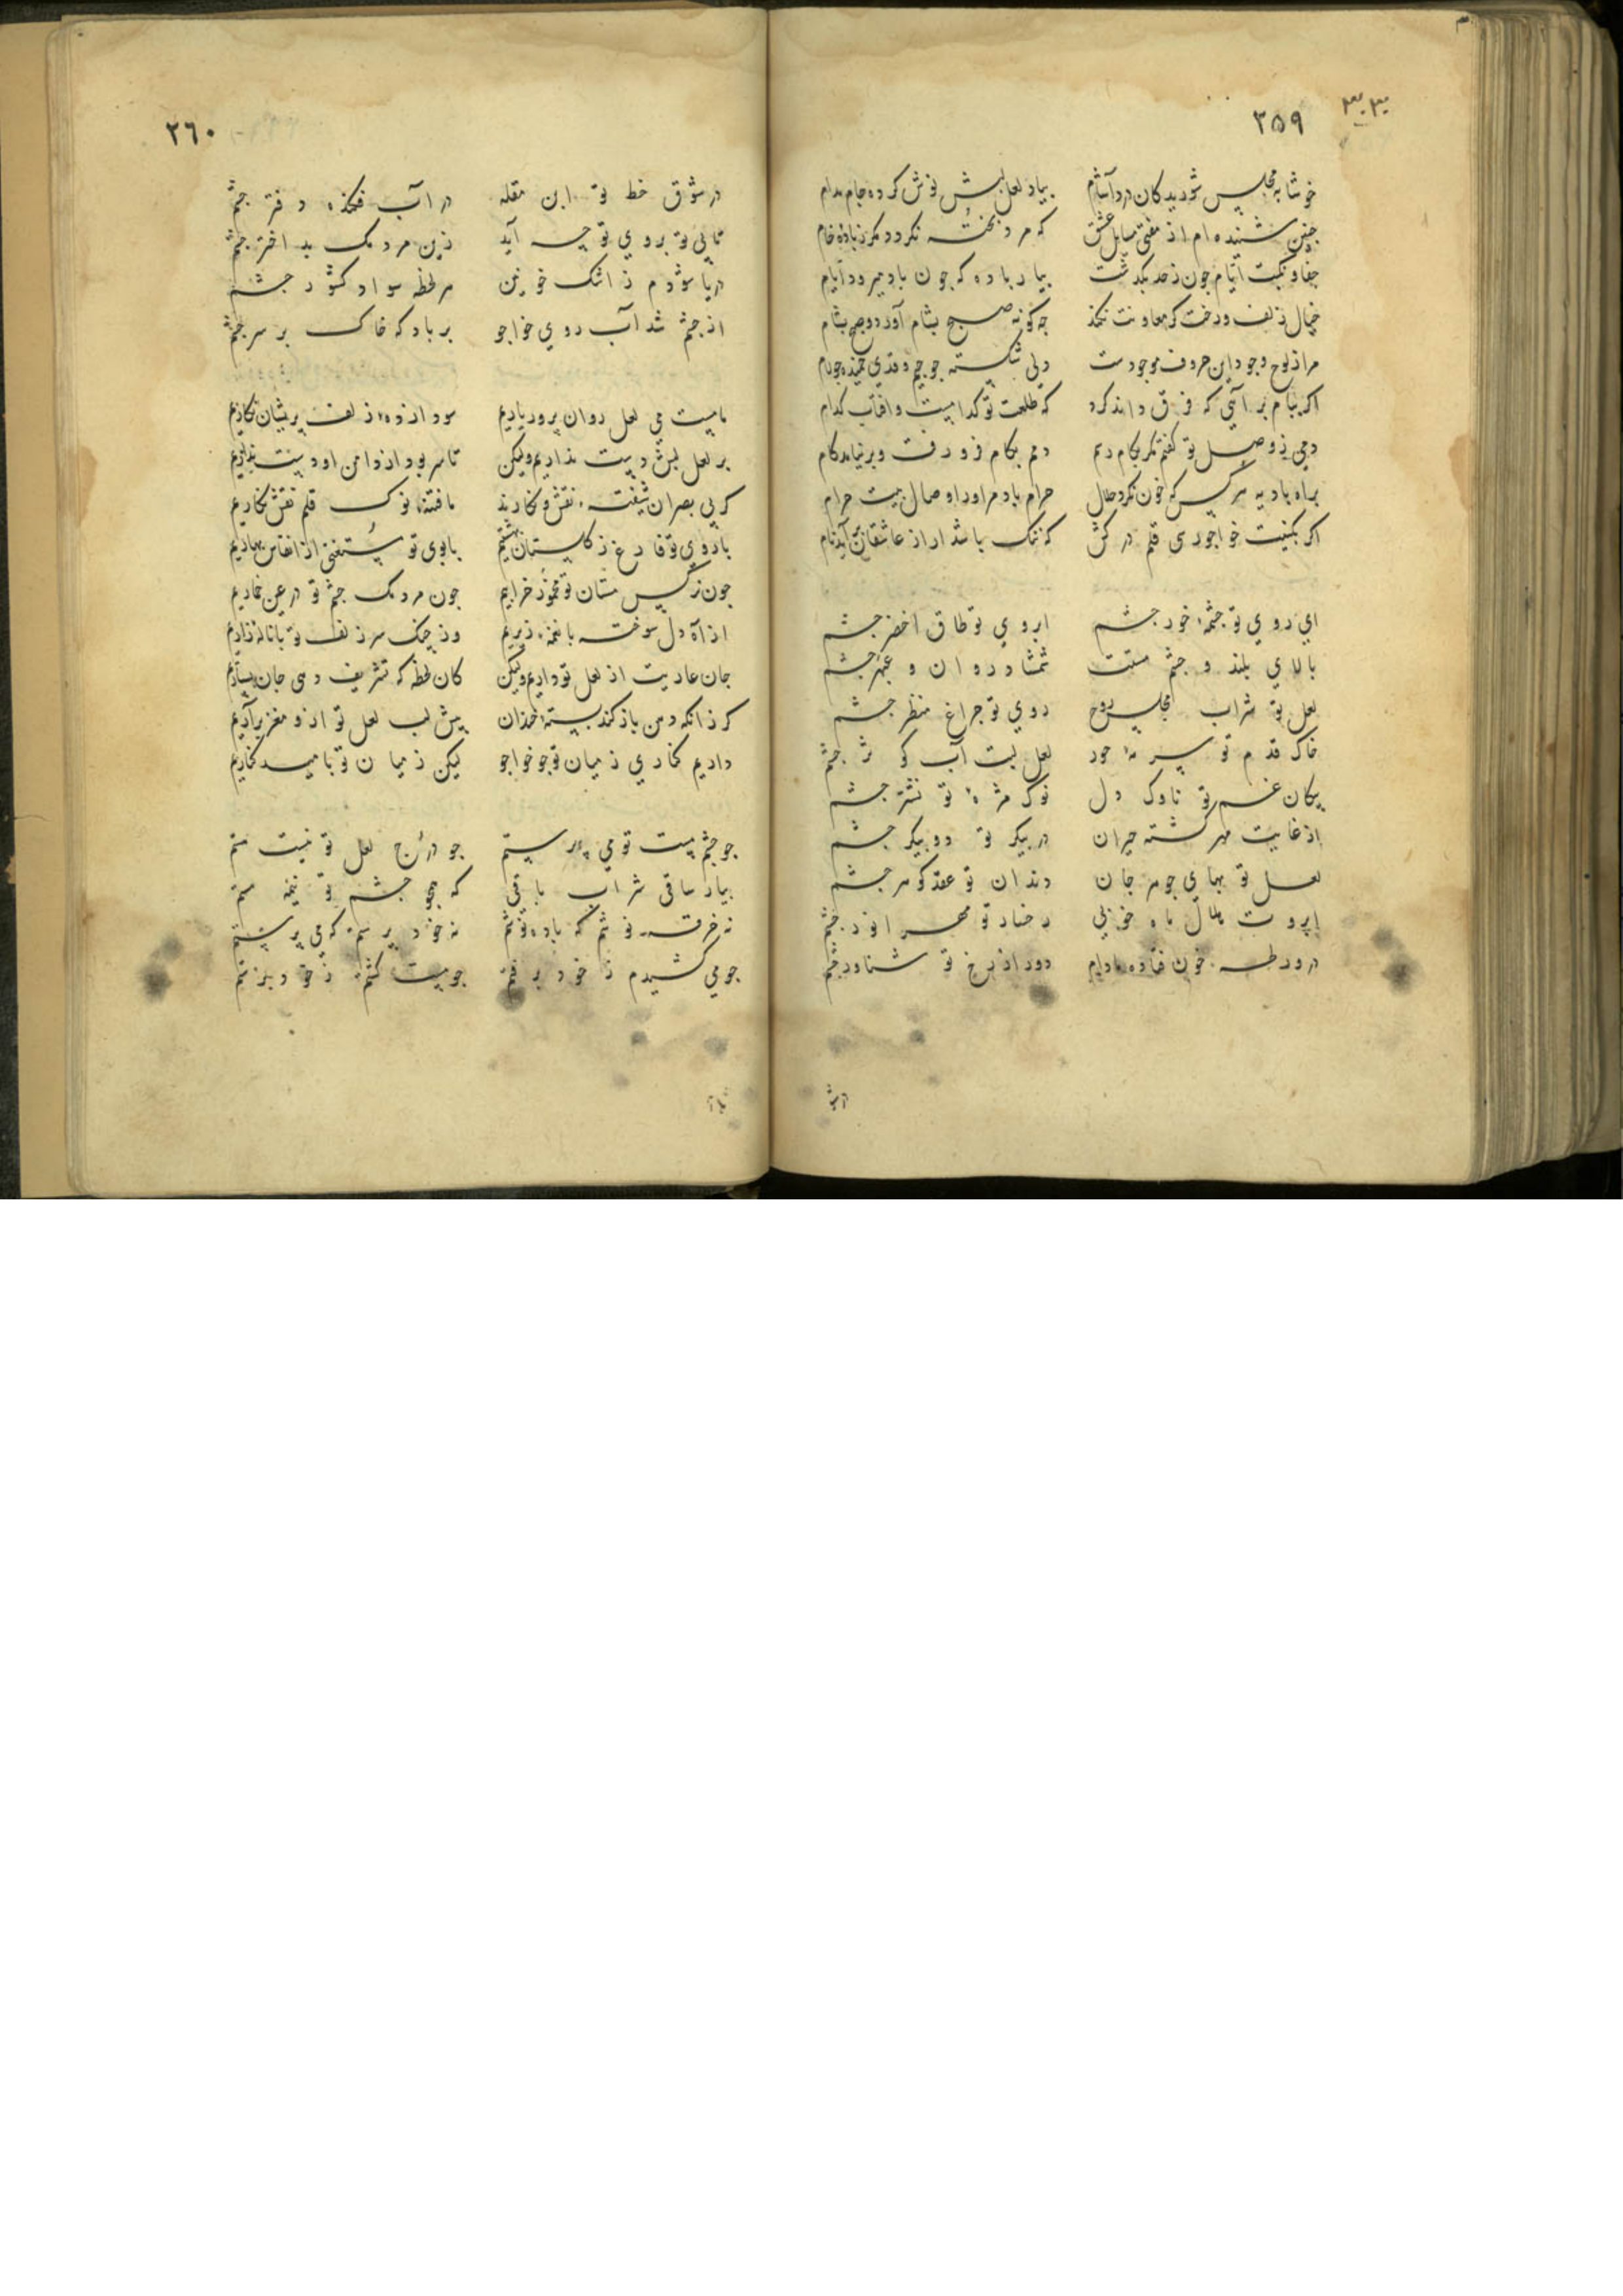 ۳۵۹
خوشا به مجلس شوریدگان درد آشام بیاد لعل لبش نوش کرده جام مدام
جنین شنیده ام از مفتی مسایل عشق که مرد بخته نکردد مکر ز باده خام
جفا و نکبت ایام جون ز حد بکذشت بیار باده که جون باد میرود ایام
خیال زلف و رخت کر معاونت نکند جه کونه صبح بشام آورد و صبح بشام
مرا ز لوح وجود این حروف موجودست دلی شکسته جو جیم و قدی خمیده جو لام
اکر ببام بر آئی که فرق داند کرد که طلعت تو کدامست و آفتاب کدام
دمی ز وصل تو کفتم مکر بکام رسم دمم بکام فرو رفت و بر نیامد کام
براه بادیه هر کس که خون نکرد حلال حرام باد مر او را وصال بیت حرام
اکر بکنیت خواجو رسی قلم در کش که ننک باشد ار از عاشقان بر آید نام
ای روی تو جشمه خور جشم ابروی تو طاق اخضر جشم
بالای بلند و جشم مستت شمشاد روان و عبهر جشم
لعل تو شراب مجلس روح روی تو جراغ منظر جشم
خاک قدم تو سرمه حور لعل لبت آب کوثر جشم
بیکان غم تو ناوک دل نوک مژه تو نشتر جشم
از غایت مهر کشته حیران در بیکر تو دو بیکر جشم
لعل تو بهای جوهر جان دندان تو عقد کوهر جشم
ابروت هلال ماه خوبی رخسار تو مهر انور جشم
در ورطه خون فتاده مادام دور از رخ تو شناور جشم
۳۶۰
در شوق خط تو ابن مقله در آب فکنده دفتر جشم
تا بی تو بروی تو جه آید زین مردمک بد اختر جشم
دریا شودم ز اشک خونین هر لحظه سواد کشور جشم
از جشم شد آب روی خواجو بر باد که خاک بر سر جشم
ما مست می لعل روان پرور یاریم سودا زده زلف پریشان نکاریم
بر لعل لبش دست نداریم ولیکن تا سر بود از دامن او دست نداریم
کر بی بصران شیفته نقش و نکارند ما فتنه نوک قلم نقش نکاریم
با روی تو فارغ ز کلستان بهشتیم با بوی تو مستغنی از انفاس بهاریم
جون نرکس مستان تو مخمور خرابیم جون مردمک جشم تو در عین خماریم
از آه دل سوخته با نغمه زیریم وز جنک سر زلف تو با ناله زاریم
جان عاریت از لعل تو داریم ولیکن آن لحظه که تشریف دهی جان بسپاریم
کر زانکه دهن باز کند پسته خندان پیش لب لعل تو ازو مغز برآریم
داریم کناری ز میان تو جو خواجو لیکن ز میان تو بامید کناریم
جو جشم مست تو می پرستم جو درج لعل تو نیست هستم
بیار ساقی شراب باقی که همجو جشم تو نیم مستم
نه خرقه پوشم که باده نوشم نه خود پرستم که می پرستم
جو می کشیدم ز خود برفتم جو مست کشتم ز خود برستم